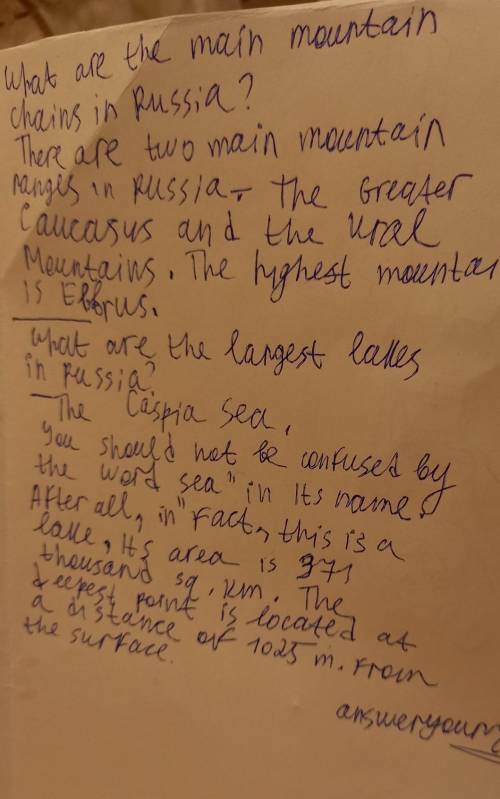 What are the main mountain
chains in Russia?
There are two main mountain
ranges in Russia - the Greater
Caucasus and the Ural
Mountains. The highest mountai
is Elbrus.
What are the largest lakes
in Russia?
The Caspia sea.
You should not be confused by
the word sea" in its name.
After all, in "fact, this is a
lake, its area is 371
thousand sq. km. The
deepest point is located at
a distance of 1025 m. from
the surface.
answeryour